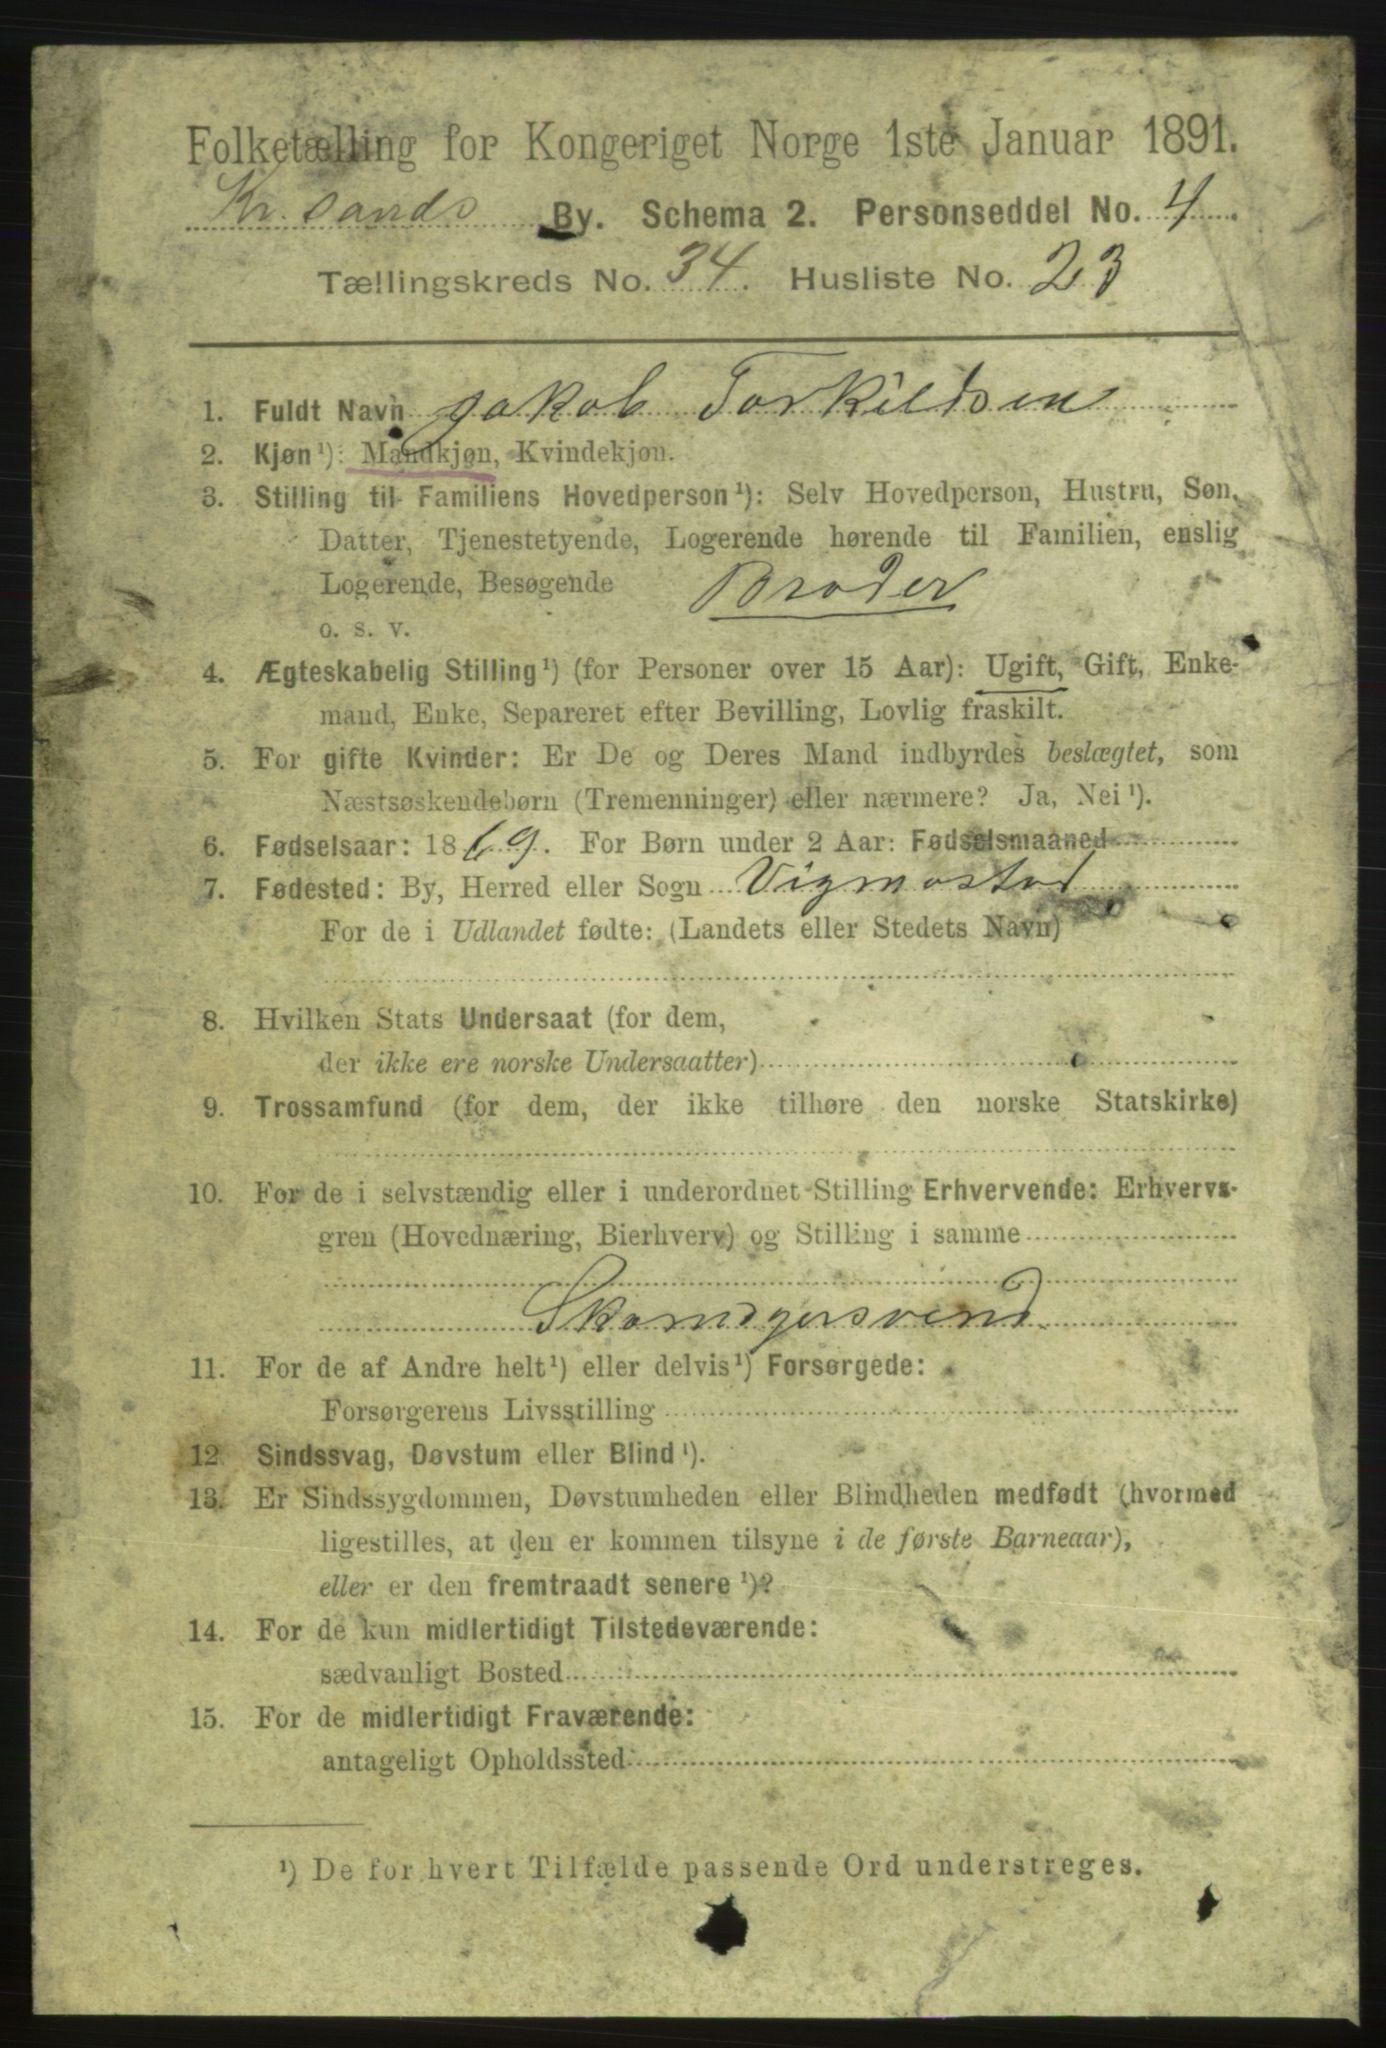 Folketælling for Kongeriget Norge 1ste Januar 1891.
Kr.sands By. Schema 2. Personseddel No. 4
Tællingskreds No. 34. Husliste No. 23
1. Fuldt Navn Jakob Torkildsen
2. Kjøn¹): Mandkjøn, Kvindekjøn.
3. Stilling til Familiens Hovedperson¹): Selv Hovedperson, Hustru, Søn,
Datter, Tjenestetyende, Logerende hørende til Familien, enslig
Logerende, Besøgende Broder
o. s. v.
4. Ægteskabelig Stilling¹) (for Personer over 15 Aar): Ugift, Gift, Enke-
mand, Enke, Separeret efter Bevilling, Lovlig fraskilt.
5. For gifte Kvinder: Er De og Deres Mand indbyrdes beslægtet, som
Næstsøskendebørn (Tremenninger) eller nærmere? Ja, Nei¹).
6. Fødselsaar: 1869. For Børn under 2 Aar: Fødselsmaaned
7. Fødested: By, Herred eller Sogn Vigmostad
For de i Udlandet fødte: (Landets eller Stedets Navn)
8. Hvilken Stats Undersaat (for dem,
der ikke ere norske Undersaatter)
9. Trossamfund (for dem, der ikke tilhøre den norske Statskirke)
10. For de i selvstændig eller i underordnet Stilling Erhvervende: Erhvervs-
gren (Hovednæring, Bierhverv) og Stilling i samme
Skomagersvend
11. For de af Andre helt¹) eller delvis¹) Forsørgede:
Forsørgerens Livsstilling
12. Sindssvag, Døvstum eller Blind¹).
13. Er Sindssygdommen, Døvstumheden eller Blindheden medfødt (hvormed
ligestilles, at den er kommen tilsyne i de første Barneaar),
eller er den fremtraadt senere¹)?
14. For de kun midlertidigt Tilstedeværende:
sædvanligt Bosted
15. For de midlertidigt Fraværende:
antageligt Opholdssted
¹) De for hvert Tilfælde passende Ord understreges.